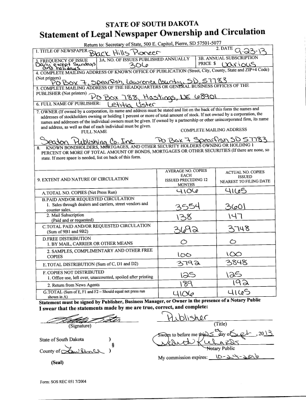 STATE OF SOUTH DAKOTA
Statement of Legal Newspaper Ownership and Circulation
Return to: Secretary of State, 500 E. Capitol, Pierre, SD 57501-5077
1. TITLE OF NEWSPAPER Black Hills Pioneer 2. DATE 9-23-13
3. FREQUENCY OF ISSUE Daily except Sundays and holidays 3A. NO. OF ISSUES PUBLISHED ANNUALLY 306 3B. ANNUAL SUBSCRIPTION PRICE $ various
4. COMPLETE MAILING ADDRESS OF KNOWN OFFICE OF PUBLICATION (Street, City, County, State and ZIP+4 Code)
(Not printers) PO Box 7, Spearfish, Lawrence County, SD 57783
5. COMPLETE MAILING ADDRESS OF THE HEADQUARTERS OR GENERAL BUSINESS OFFICES OF THE
PUBLISHER (Not printers) PO Box 788, Hastings, NE 68902
6. FULL NAME OF PUBLISHER: Letitia Lister
7. OWNER (If owned by a corporation, its name and address must be stated and list on the back of this form the names and
addresses of stockholders owning or holding 1 percent or more of total amount of stock. If not owned by a corporation, the
names and addresses of the individual owners must be given. If owned by a partnership or other unincorporated firm, its name
and address, as well as that of each individual must be given.
FULL NAME COMPLETE MAILING ADDRESS
Seaton Publishing Co. Inc PO Box 7 Spearfish SD 57783
8. KNOWN BONDHOLDERS, MORTGAGEES, AND OTHER SECURITY HOLDERS OWNING OR HOLDING 1
PERCENT OR MORE OF TOTAL AMOUNT OF BONDS, MORTGAGES OR OTHER SECURITIES (If there are none, so
state. If more space is needed, list on back of this form.
9. EXTENT AND NATURE OF CIRCULATION AVERAGE NO. COPIES EACH ISSUED PRECEDING 12 MONTHS ACTUAL NO. COPIES ISSUED NEAREST TO FILING DATE
A. TOTAL NO. COPIES (Net Press Run) 4106 4165
B. PAID AND/OR REQUESTED CIRCULATION
1. Sales through dealers and carriers, street vendors and counter sales. 3554 3601
2. Mail Subscription
(Paid and or requested) 138 147
C. TOTAL PAID AND/OR REQUESTED CIRCULATION
(Sum of 9B1 and 9B2) 3692 3748
D. FREE DISTRIBUTION
1. BY MAIL, CARRIER OR OTHER MEANS 0 0
2. SAMPLES, COMPLIMENTARY AND OTHER FREE COPIES 100 100
E. TOTAL DISTRIBUTION (Sum of C, D1 and D2) 3792 3848
F. COPIES NOT DISTRIBUTED
1. Office use, left over, unaccounted, spoiled after printing 125 125
2. Return from News Agents 189 192
G. TOTAL (Sum of E, F1 and F2 - Should equal net press run shown in A) 4106 4165
Statement must be signed by Publisher, Business Manager, or Owner in the presence of a Notary Public
I swear that the statements made by me are true, correct, and complete:
Publisher
(Signature) (Title)
State of South Dakota ) Sworn to before me this day of Sept, 2013
County of Lawrence )
Notary Public
(Seal) My commission expires:
Form: SOS REC 051 7/2004